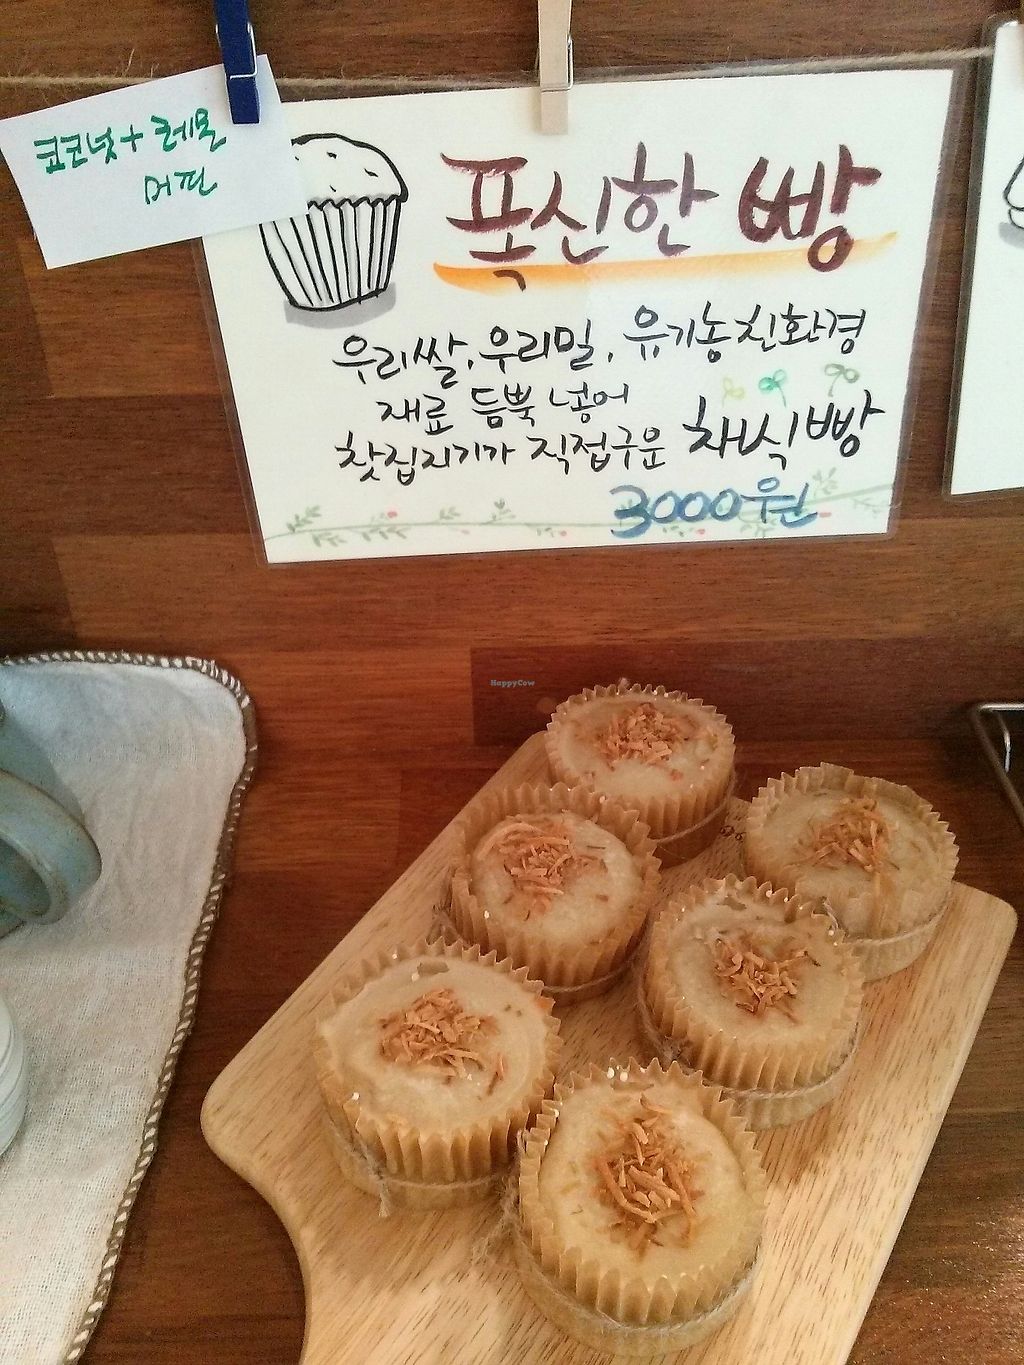 코코넛+레몬
머핀
폭신한 빵
우리쌀, 우리밀, 유기농 친환경
재료 듬뿍 넣어
찻집지기가 직접구운 채식빵
3000원
HappyCow